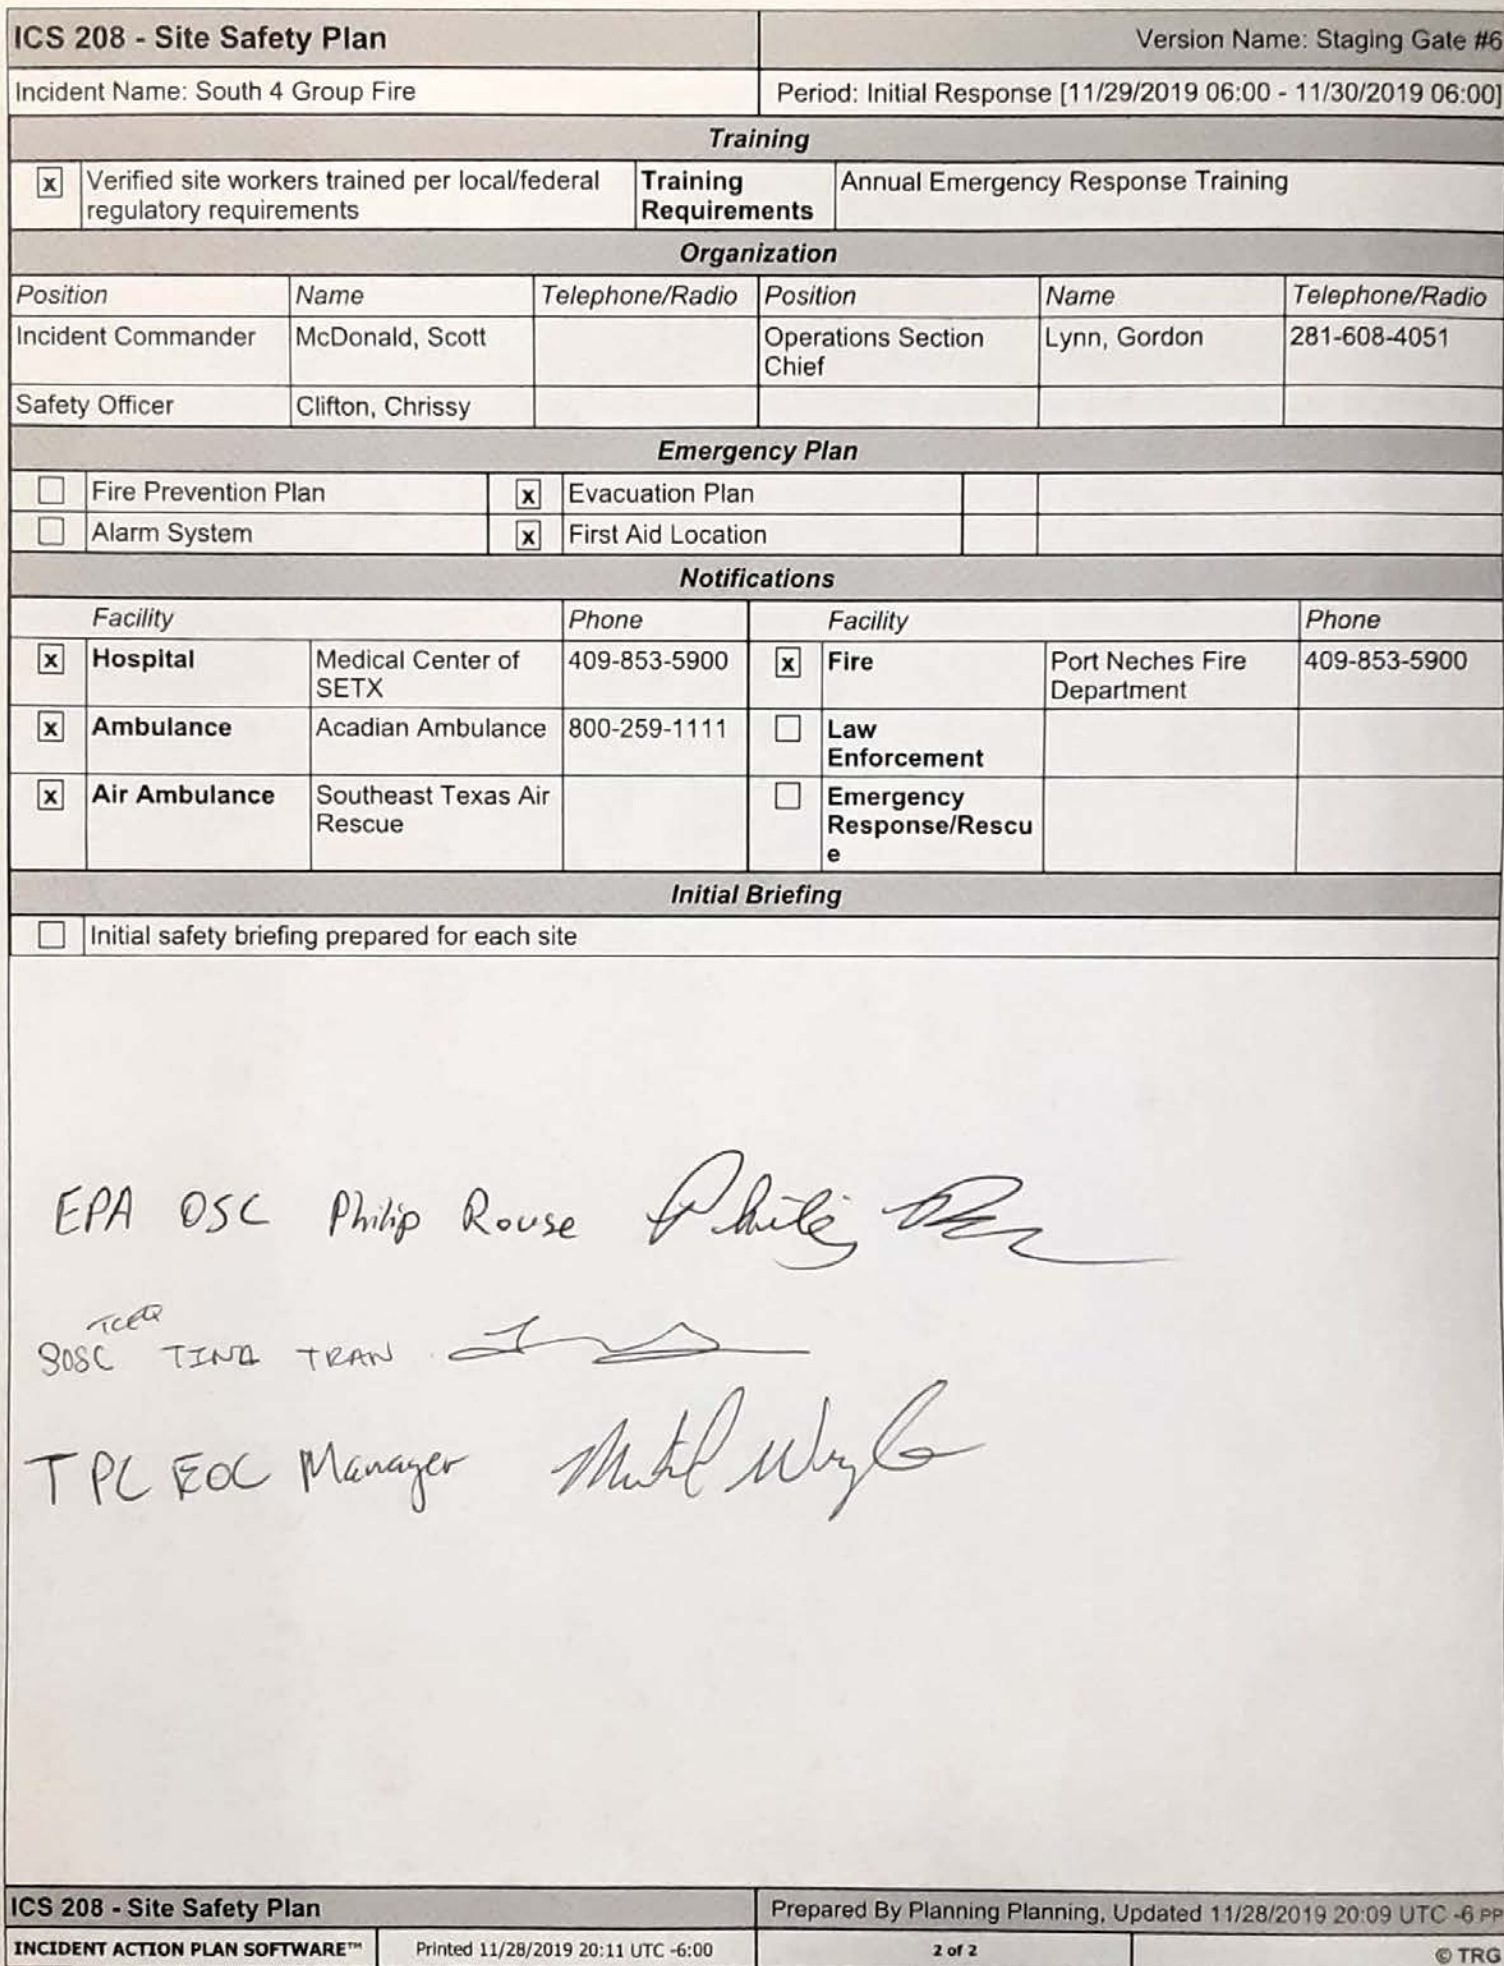 ICS 208 - Site Safety Plan Version Name: Staging Gate #6
Incident Name: South 4 Group Fire Period: Initial Response [11/29/2019 06:00 - 11/30/2019 06:00]
Training
x Verified site workers trained per local/federal
regulatory requirements
Training
Requirements
Annual Emergency Response Training
Organization
Position Name Telephone/Radio Position Name Telephone/Radio
Incident Commander McDonald, Scott Operations Section
Chief
Lynn, Gordon 281-608-4051
Safety Officer Clifton, Chrissy
Emergency Plan
Fire Prevention Plan x Evacuation Plan
Alarm System x First Aid Location
Notifications
Facility Phone Facility Phone
x Hospital Medical Center of
SETX
409-853-5900 x Fire Port Neches Fire
Department
409-853-5900
x Ambulance Acadian Ambulance 800-259-1111 Law
Enforcement
x Air Ambulance Southeast Texas Air
Rescue
Emergency
Response/Rescu
e
Initial Briefing
Initial safety briefing prepared for each site
EPA OSC Philip Rouse
TCEQ
SOSC TINA TRAN
TPC EOC Manager
ICS 208 - Site Safety Plan Prepared By Planning Planning, Updated 11/28/2019 20:09 UTC -6 PP
INCIDENT ACTION PLAN SOFTWARE™ Printed 11/28/2019 20:11 UTC -6:00 2 of 2 © TRG